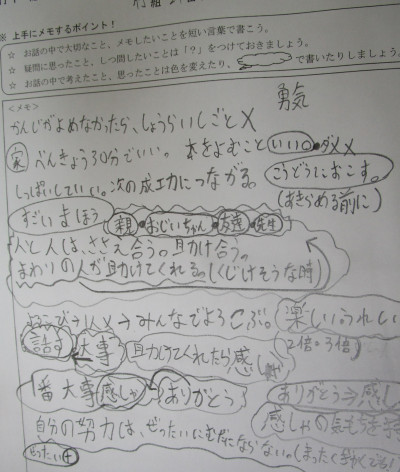 ※ 上手にメモするポイント！
☆ お話の中で大切なこと、メモしたいことを短い言葉で書こう。
☆ 疑問に思ったこと、しつ問したいことは「？」をつけておきましょう。
☆ お話の中で考えたこと、思ったことは色を変えたり、 で書いたりしましょう。
＜メモ＞
勇気
かんじがよめなかったら、しょうらいしごと×
家 べんきょう30分でいい。 本をよむこといい。ダメ
しっぱいしていい。次の成功につながる。 こうどうにおこす。
(あきらめる前に)
すごいまほう 親・おじいちゃん・友達・先生
人と人は、ささえ合う。助け合う。
まわりの人が助けてくれる。(くじけそうな時)
よろこび→1人×→みんなでよろこぶ。 楽しい。うれしい
2倍・3倍
話す 大事 助けてくれたら感しゃ
一番大事感しゃ ありがとう ありがとう→感し
感しゃの気もちを持
自分の努力は、ぜったいにむだにならない。
ぜったい